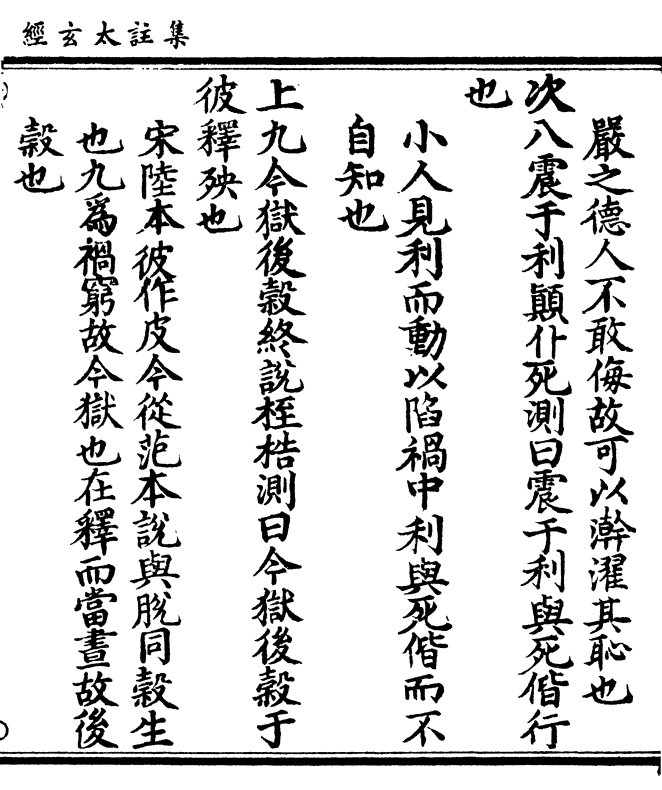 集註太玄經
嚴之德人不敢侮故可以澣濯其恥也
次八震于利顛仆死測曰震于利與死偕行
也
小人見利而動以陷禍中利與死偕而不
自知也
上九今獄後穀終說桎梏測曰今獄後穀于
彼釋殃也
宋陸本彼作皮今從范本說與脫同穀生
也九爲禍窮故今獄也在釋而當晝故後
穀也